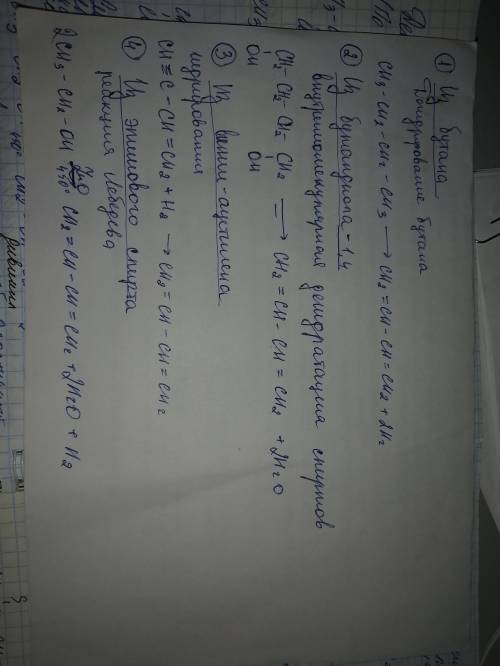 ① Из бутана
Дегидрирование бутана
CH3-CH2-CH2-CH3 → CH2=CH-CH=CH2 + 2H2
② Из бутандиола-1,4
внутримолекулярная дегидратация спиртов
CH2-CH2-CH2-CH2 → CH2=CH-CH=CH2 + 2H2O
OH OH
③ Из винил-ацетилена
гидрирование
CH≡C-CH=CH2 + H2 → CH2=CH-CH=CH2
④ Из этилового спирта
реакция Лебедева
2CH3-CH2-OH CH2=CH-CH=CH2 + 2H2O + H2